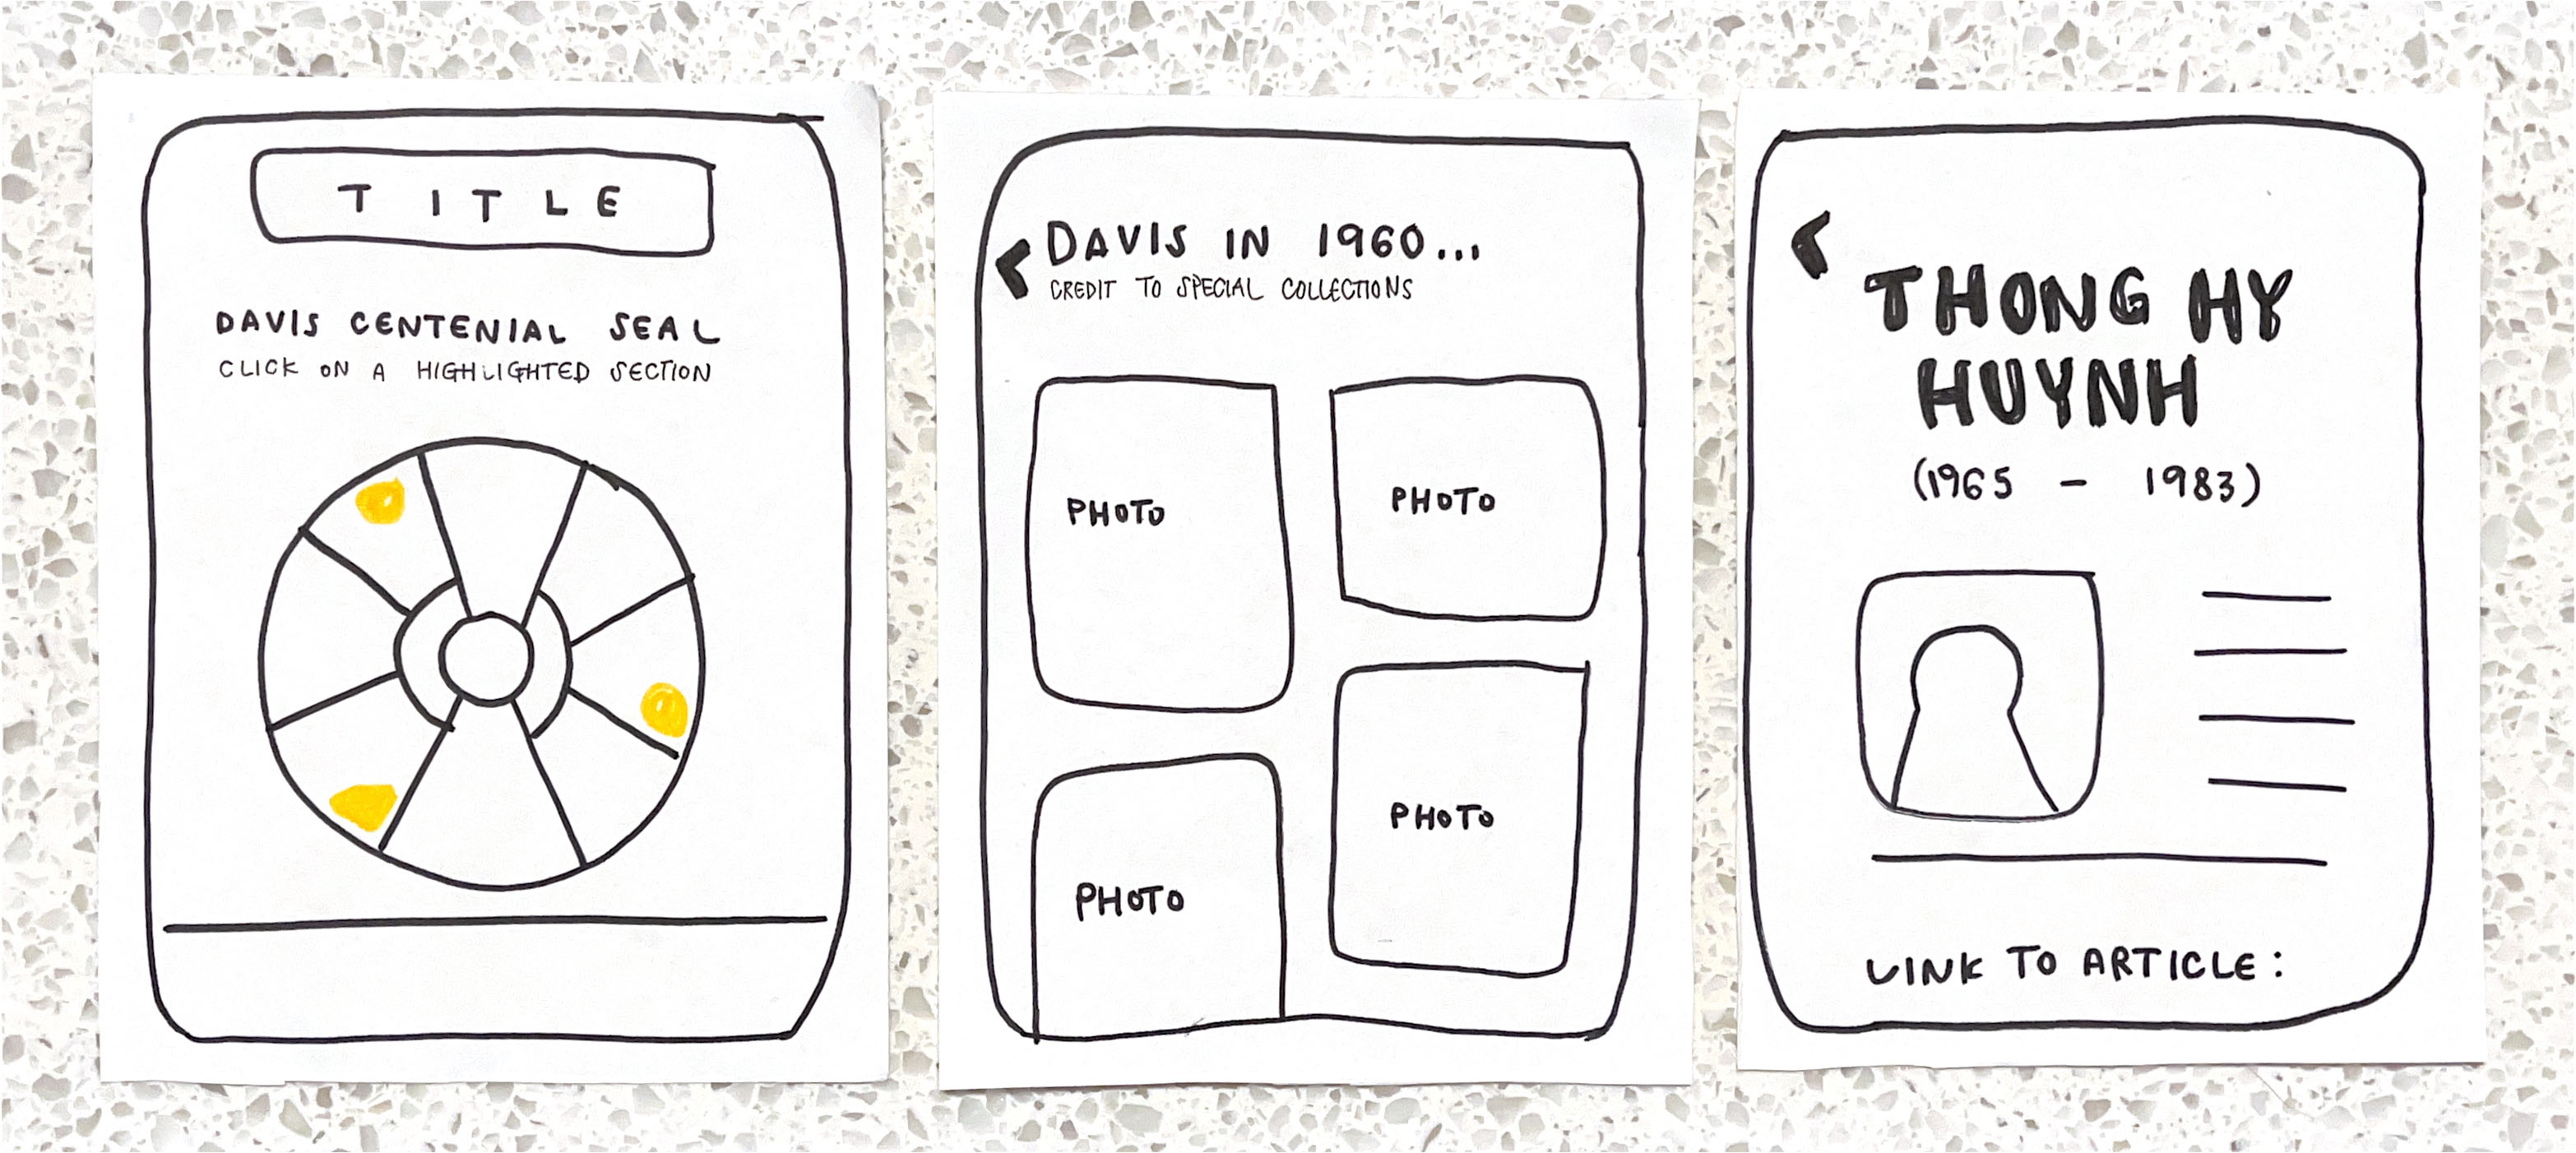 TITLE
DAVIS CENTENIAL SEAL
CLICK ON A HIGHLIGHTED SECTION
DAVIS IN 1960...
CREDIT TO SPECIAL COLLECTIONS
PHOTO
PHOTO
PHOTO
PHOTO
THONG HY
HUYNH
(1965 - 1983)
LINK TO ARTICLE: